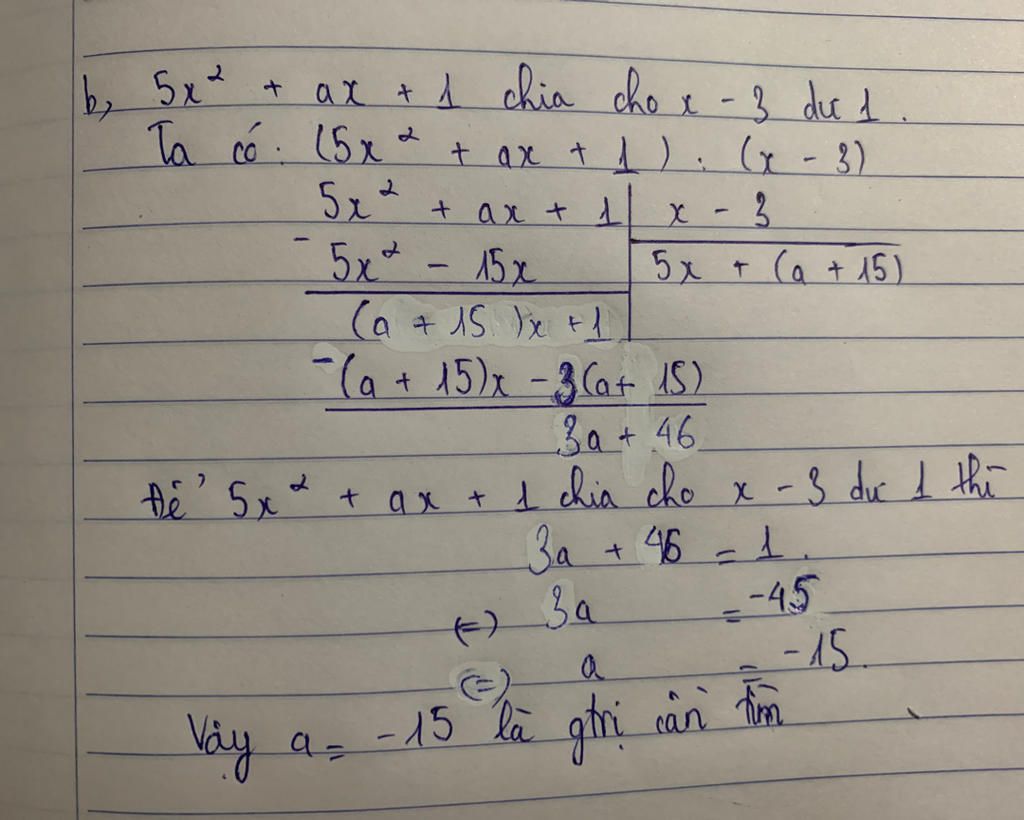 b, 5x² + ax + 1 chia cho x - 3 dư 1.
Ta có: (5x² + ax + 1) : (x - 3)
5x² + ax + 1 | x - 3
- 5x² - 15x | 5x + (a + 15)
(a + 15)x + 1
-(a + 15)x - 3(a + 15)
3a + 46
Để 5x² + ax + 1 chia cho x - 3 dư 1 thì
3a + 46 = 1.
(=) 3a = -45
(=) a = -15.
Vậy a = -15 là gtrị cần tìm